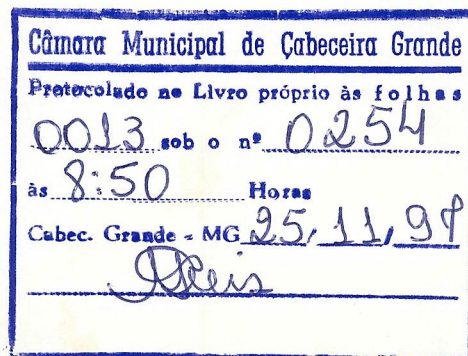 Câmara Municipal de Cabeceira Grande
Protocolado no Livro próprio às folhas
0013 sob o nº 0254
às 8:50 Horas
Cabec. Grande - MG 25, 11, 97
Reis